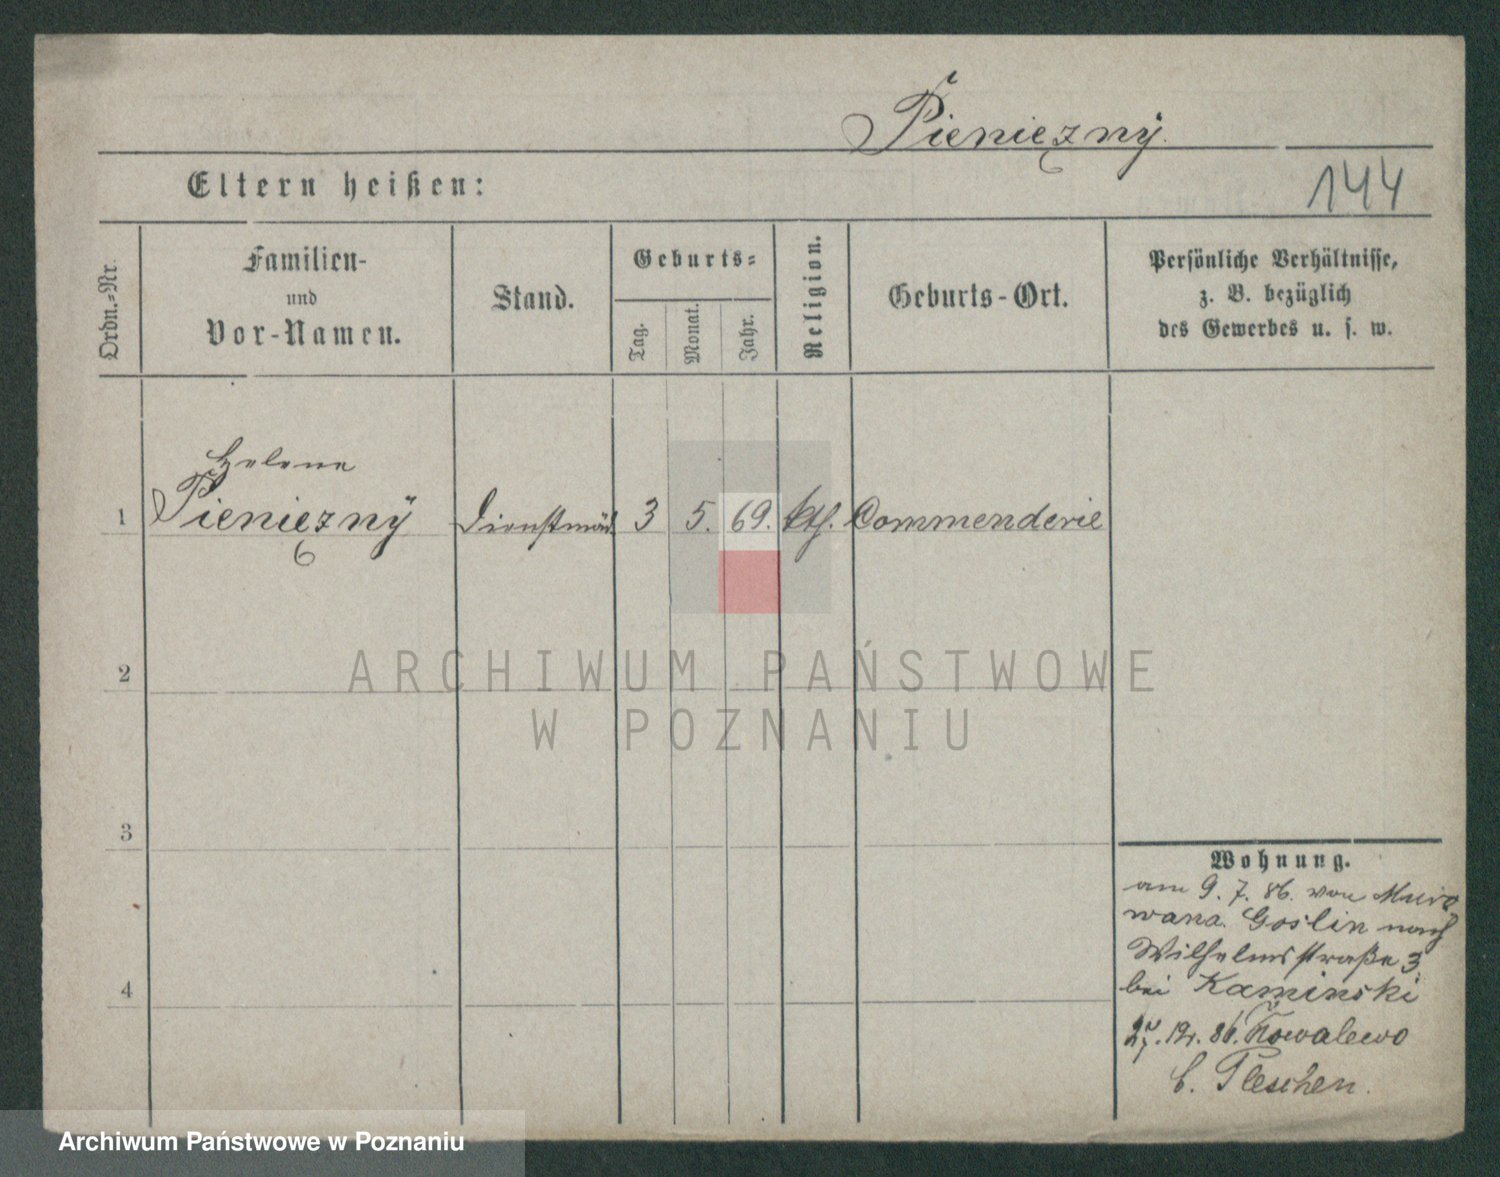 Pieniężny.
144
Eltern heißen:
Ordn.=Nr.
Familien-
und
Vor-Namen.
Stand.
Geburts=
Tag.
Monat.
Jahr.
Religion.
Geburts-Ort.
Persönliche Verhältnisse,
z. B. bezüglich
des Gewerbes u. s. w.
Helene
1 Pieniężny Dienstmäd. 3 5. 69. kth. Commenderie
2
ARCHIWUM PAŃSTWOWE
W POZNANIU
3
4
Wohnung.
am 9. 7. 86. von Muro
wana. Goslin nach
Wilhelmsstraße 3
bei Kaminski
86. Kowalewo
b. Pleschen.
Archiwum Państwowe w Poznaniu